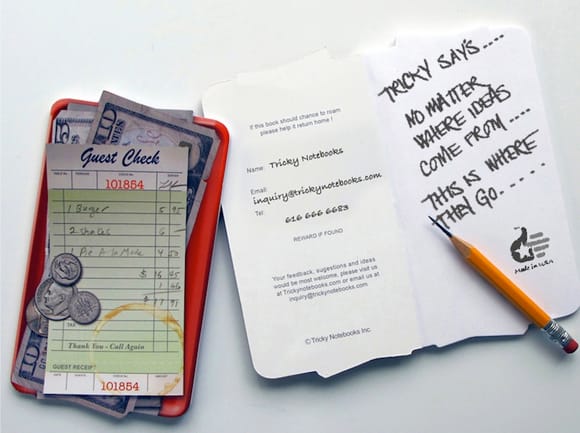 Guest Check
101854
1 Burger 5 95
2 Shakes 6 -
1 Pie A la Mode 4 50
$ 16 45
1 46
$ 17 91
TAX
Thank You - Call Again
GUEST RECEIPT
DATE
AMOUNT
101854
If this book should chance to roam
please help it return home !
Name: Tricky Notebooks
Email:
inquiry@trickynotebooks.com
Tel:
616 666 6683
REWARD IF FOUND
Your feedback, sugestions and ideas
would be most welcome, please visit us
at Trickynotebooks.com or email us at
inquiry@trickynotebooks.com
© Tricky Notebooks Inc.
TRICKY SAYS....
NO MATTER
WHERE IDEAS
COME FROM ....
THIS IS WHERE
THEY GO.....
Made in USA